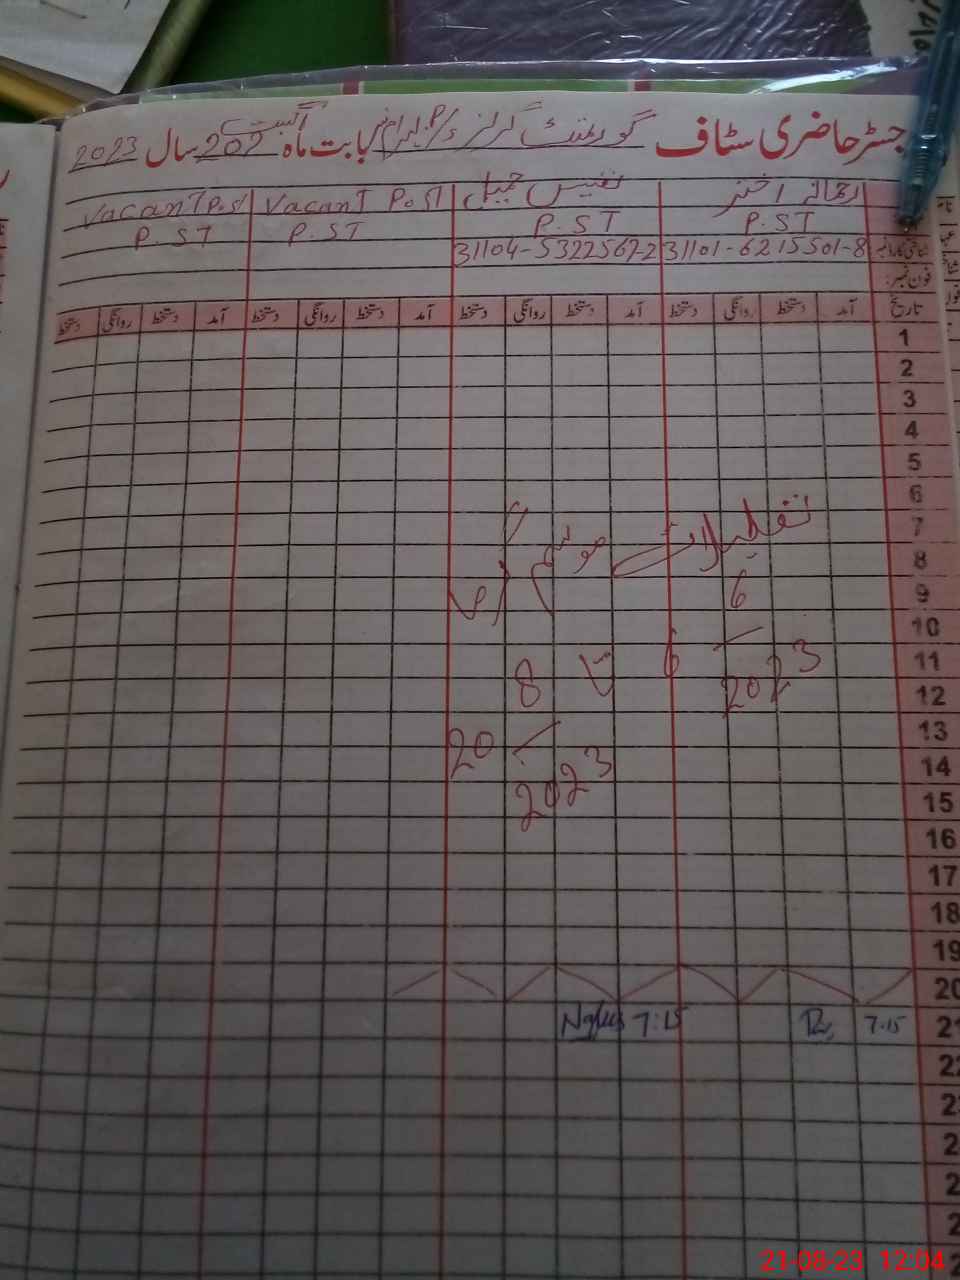 جسٹر حاضری سٹاف گورنمنٹ گرلز بابت ماہ اگست 202 سال 2023
اختر نفیس جمیل Vacant Post Vacant Post
P.ST P.ST P.ST P.ST
31101-6215501-8 31104-5322567-2
فون نمبر:
تاریخ آمد دستخط روانگی دستخط آمد دستخط روانگی دستخط آمد دستخط روانگی دستخط آمد دستخط روانگی دستخط
1
2
3
4
5
6
7
تعطیلات موسم گرما
8
9
6
10
11
6 2023 تا 8
12
13
20
14
2023
15
16
17
18
19
20
21 7.15 7:15
22
21-08-23 12:04